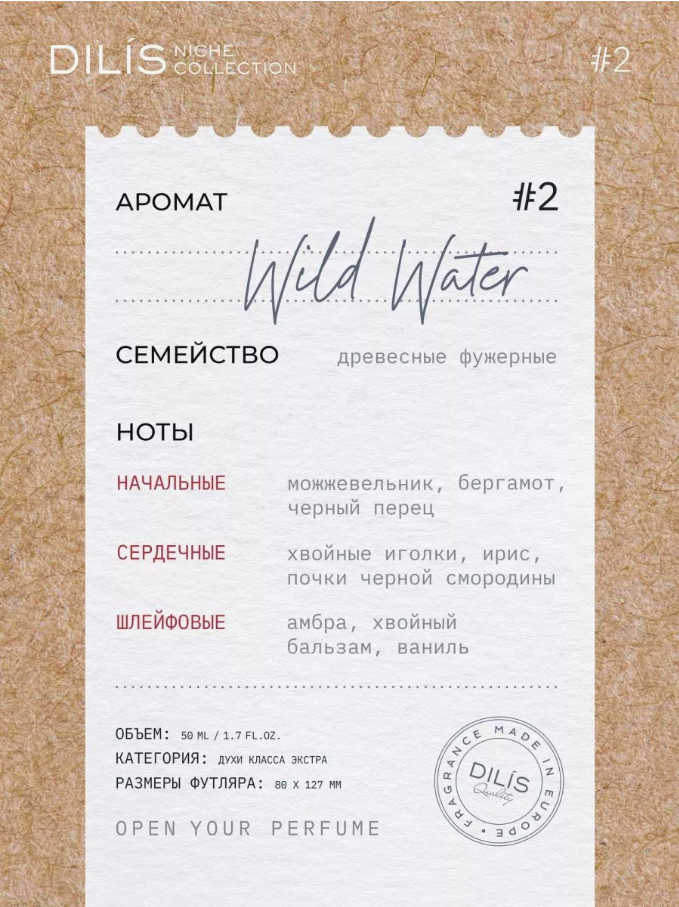 DILÍS NICHE COLLECTION #2
АРОМАТ #2
Wild Water
СЕМЕЙСТВО древесные фужерные
НОТЫ
НАЧАЛЬНЫЕ можжевельник, бергамот,
черный перец
СЕРДЕЧНЫЕ хвойные иголки, ирис,
почки черной смородины
ШЛЕЙФОВЫЕ амбра, хвойный
бальзам, ваниль
ОБЪЕМ: 50 ML / 1.7 FL.OZ.
КАТЕГОРИЯ: ДУХИ КЛАССА ЭКСТРА
РАЗМЕРЫ ФУТЛЯРА: 80 X 127 ММ
OPEN YOUR PERFUME
FRAGRANCE MADE IN EUROPE •
DILÍS
Quality